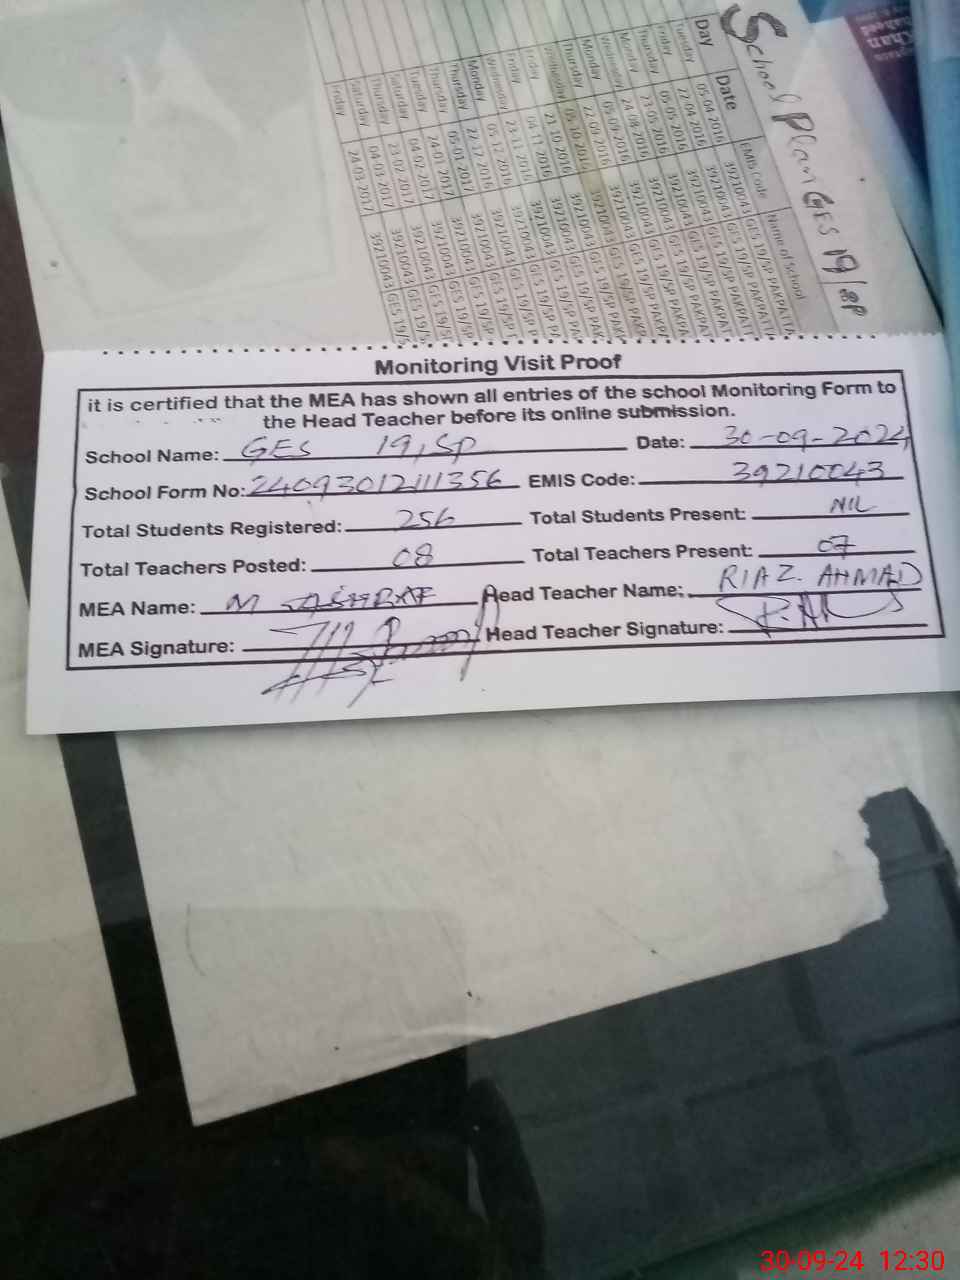 School Plan GES 19/SP
Day Date EMIS Code Name of School
Tuesday 05-04-2016 39210043 GES 19/SP PAKPATTA
Friday 22-04-2016 39210043 GES 19/SP PAKPATT
Thursday 05-05-2016 39210043 GES 19/SP PAKPAT
Monday 23-05-2016 39210043 GES 19/SP PAKPAT
24-08-2016 39210043 GES 19/SP PAKPA
Monday 05-09-2016 39210043 GES 19/SP PAKP
Thursday 22-09-2016 39210043 GES 19/SP PAK
Wednesday 05-10-2016 39210043 GES 19/SP PA
Friday 21-10-2016 39210043 GES 19/SP P
Friday 04-11-2016 39210043 GES 19/SP
Wednesday 23-11-2016 39210043 GES 19/SP
Monday 05-12-2016 39210043 GES 19/SP
Thursday 22-12-2016 39210043 GES 19/SP
Thursday 05-01-2017 39210043 GES 19/S
Tuesday 24-01-2017 39210043 GES 19/S
Saturday 04-02-2017 39210043 GES 19/S
Thursday 23-02-2017 39210043 GES 19/
Saturday 04-03-2017
Friday 24-03-2017 39210043 GES 19/S
Khan
Monitoring Visit Proof
it is certified that the MEA has shown all entries of the school Monitoring Form to
the Head Teacher before its online submission.
School Name: GES 19,SP Date: 30-09-2024
School Form No: 24093012111356 EMIS Code: 39210043
Total Students Registered: 256 Total Students Present: NIL
Total Teachers Posted: 08 Total Teachers Present: 07
MEA Name: M ASHRAF Head Teacher Name: RIAZ AHMAD
MEA Signature: Head Teacher Signature:
30-09-24 12:30